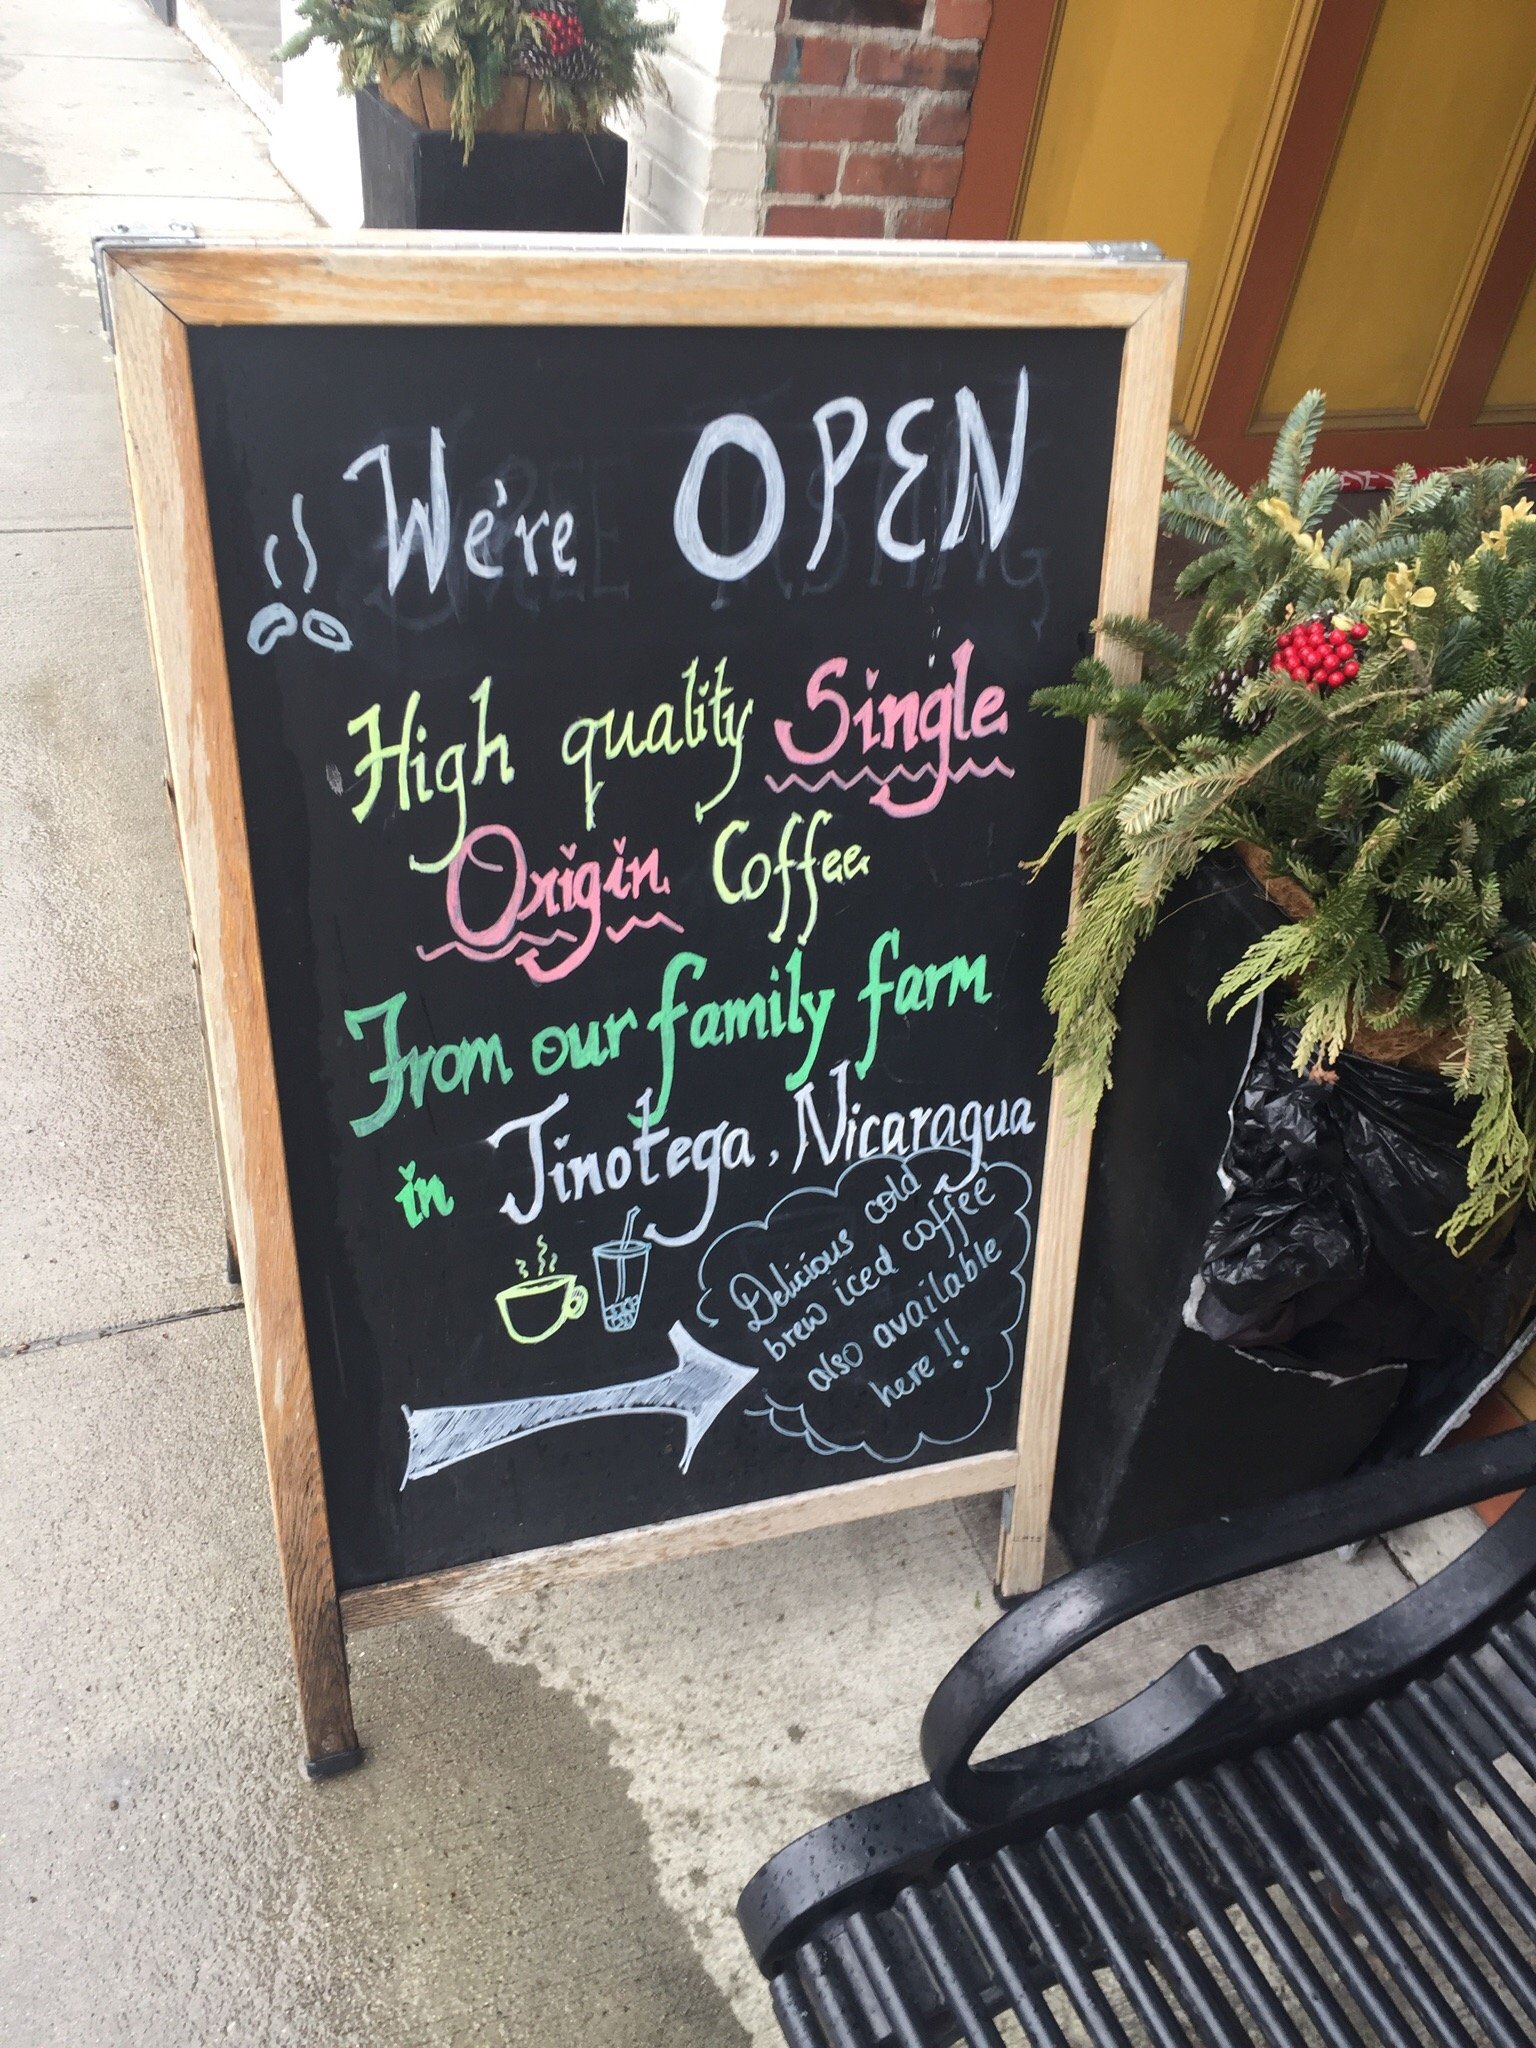 We're OPEN
High quality Single
Origin Coffee
From our family farm
in Jinotega, Nicaragua
Delicious cold
brew iced coffee
also available
here!!